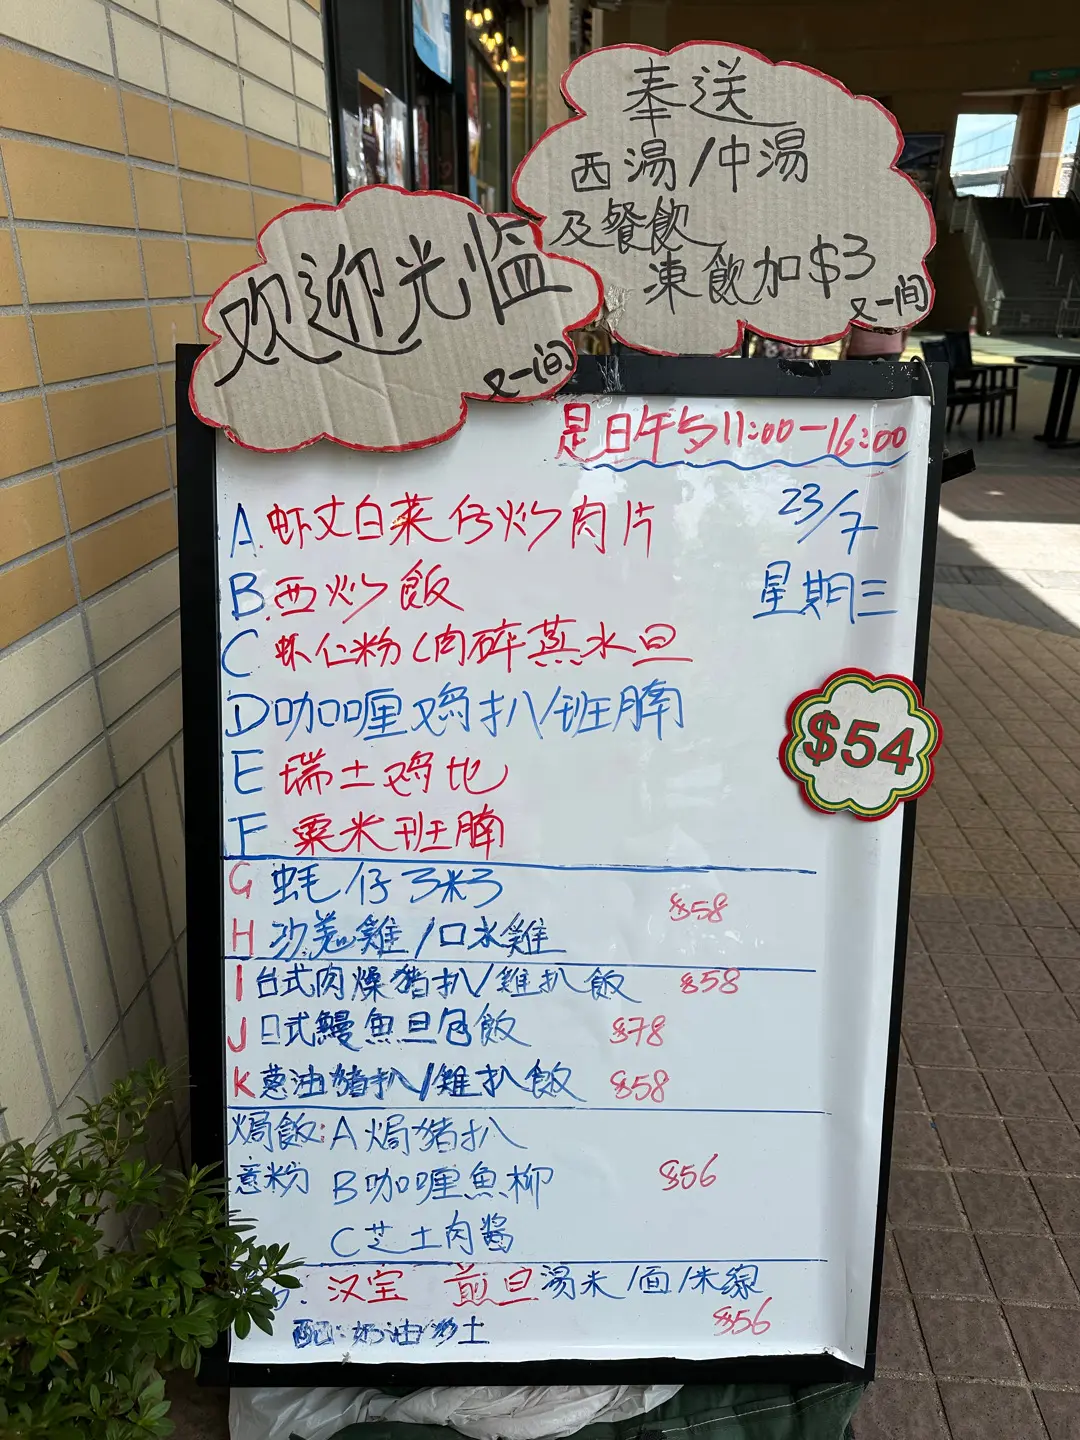 奉送
西湯/中湯
及餐飲
凍飲加$3
又一間
欢迎光临
又一间
是日午歺11:00-16:00
23/7
星期三
A.虾丸白菜仔炒肉片
B.西炒飯
C 虾仁粉(肉碎蒸水旦
D咖喱鸡扒/班腩
E 瑞士鸡扎
F 粟米班腩
$54
G 蚝仔
H 沙羗雞/口水雞
$58
I 台式肉燥猪扒/雞扒飯 $58
J 日式鰻魚旦包飯 $78
K 葱油豬扒/雞扒飯 $58
焗飯:A焗豬扒
意粉 B咖喱魚柳
$56
C芝士肉醬
汉宝 煎旦湯米/面/米線
配:奶油多士
$56